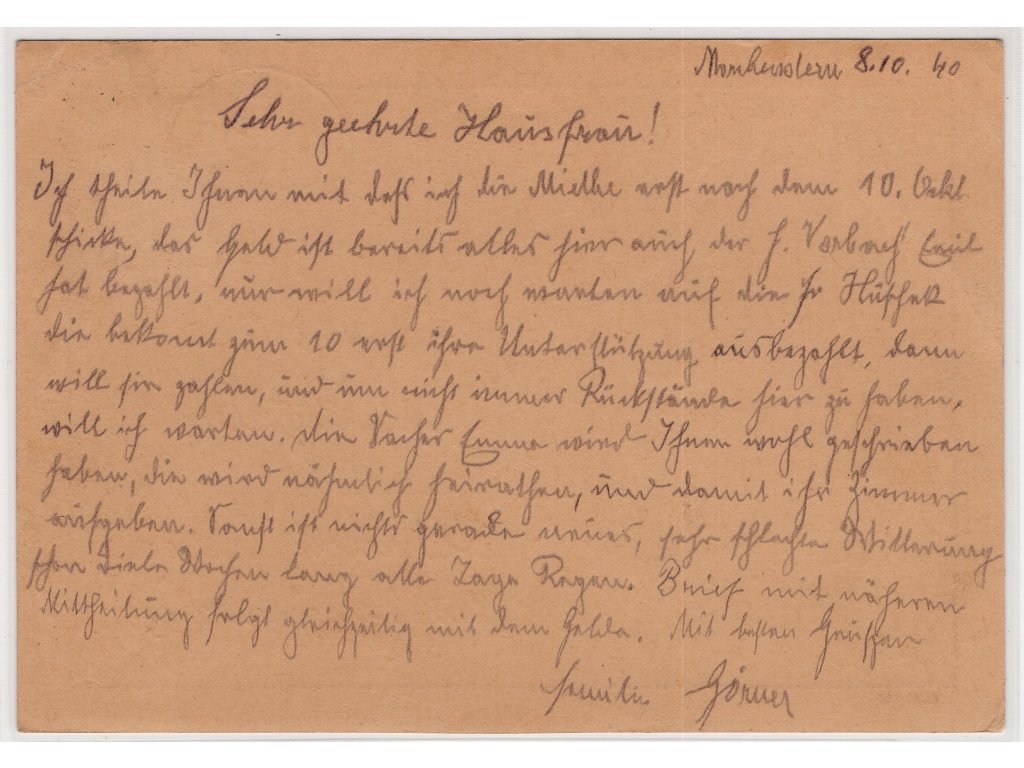 Morchenstern 8.10. 40
Sehr geehrte Hausfrau!
Ich theile Ihnen mit daß ich die Miethe erst nach dem 10. Ockt.
schicke, das Geld ist bereits alles hier auch der H. Vorbach Emil
hat bezahlt, nur will ich noch warten auf die Fr Hüschek
die bekomt zum 10 erst ihre Unterstützung ausbezahlt, dann
will sie zahlen, und um nicht immer Rückstände hier zu haben,
will ich warten. die Emma wird Ihnen wohl geschrieben
haben, die wird nähmlich heirathen, und damit ihr Zimmer
aufgeben. Sonst ist nichts gerade neues, sehr schlechte Witterung
schon viele Wochen lang alle Tage Regen. Brief mit näheren
Mittheilung folgt gleichzeitig mit dem Gelde. Mit besten Grüßen
Familie Görner